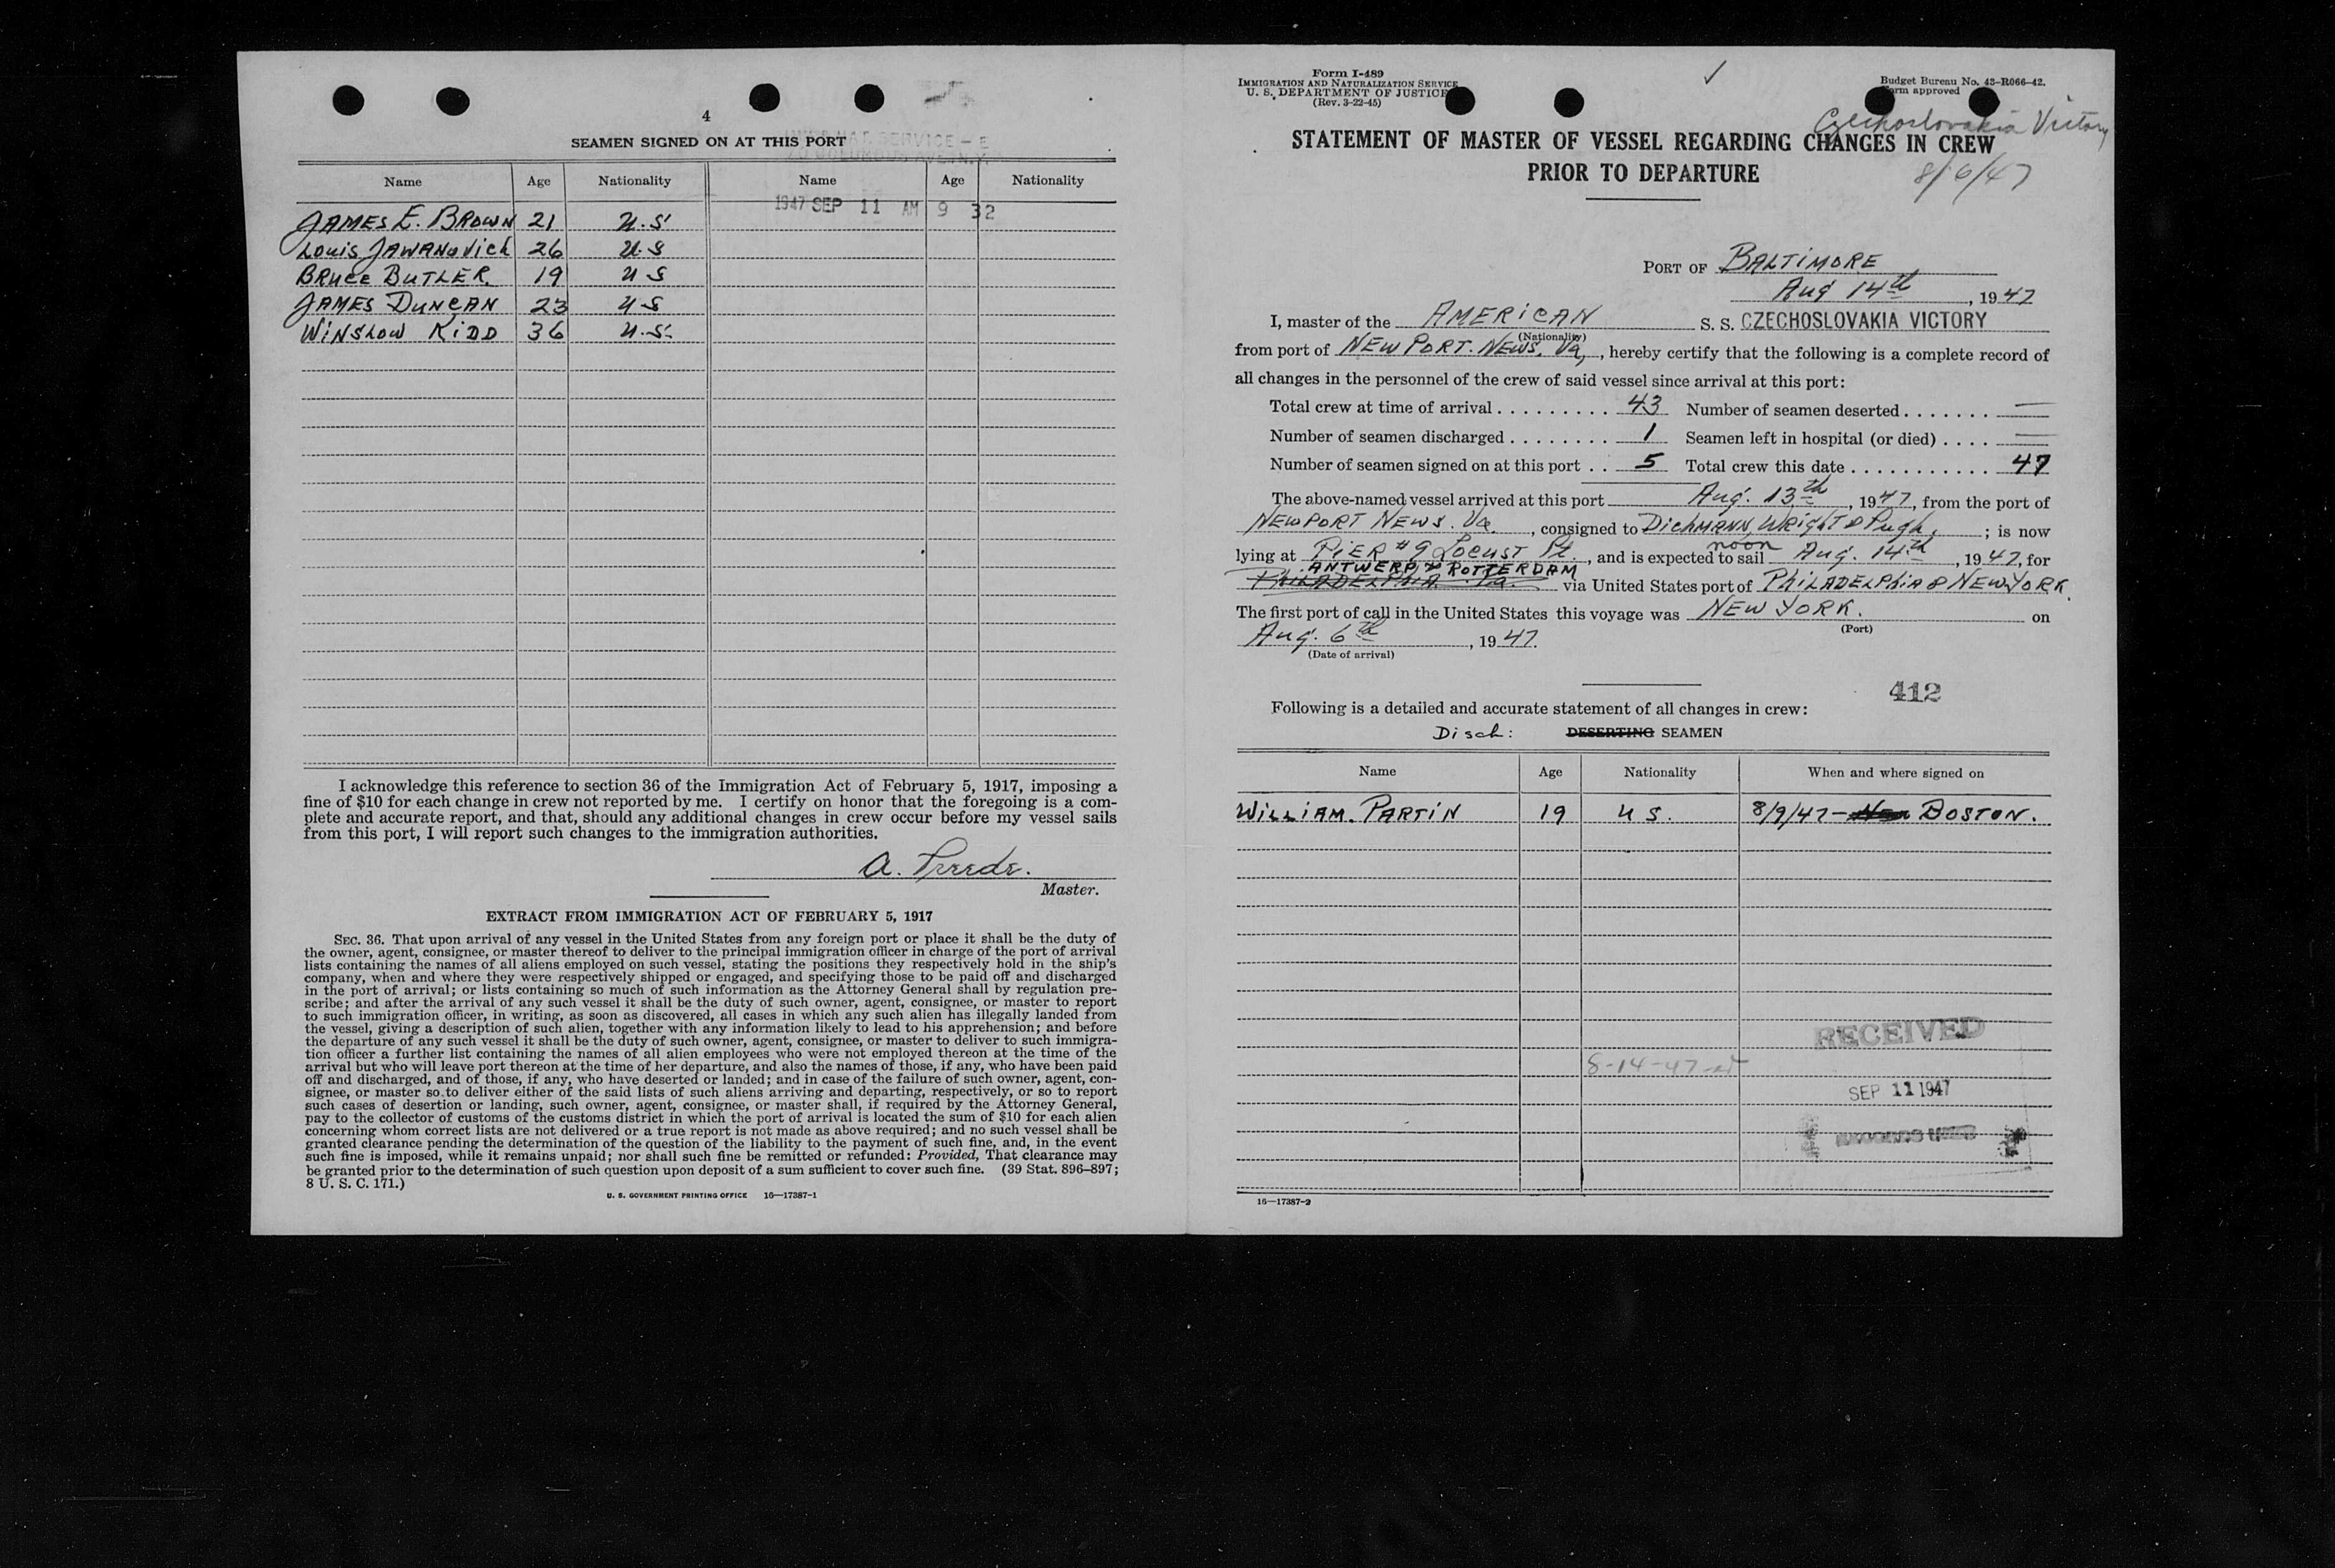 4
SEAMEN SIGNED ON AT THIS PORT
Name Age Nationality Name Age Nationality
1947 SEP 11 AM 9 32
JAMES E. BROWN 21 U.S.
LOUIS JAWANOVICH 26 U.S
BRUCE BUTLER. 19 U S
JAMES DUNCAN 23 U S
WINSLOW KIDD 36 U.S.
I acknowledge this reference to section 36 of the Immigration Act of February 5, 1917, imposing a
fine of $10 for each change in crew not reported by me. I certify on honor that the foregoing is a com-
plete and accurate report, and that, should any additional changes in crew occur before my vessel sails
from this port, I will report such changes to the immigration authorities.
A.
Master.
EXTRACT FROM IMMIGRATION ACT OF FEBRUARY 5, 1917
SEC. 36. That upon arrival of any vessel in the United States from any foreign port or place it shall be the duty of
the owner, agent, consignee, or master thereof to deliver to the principal immigration officer in charge of the port of arrival
lists containing the names of all aliens employed on such vessel, stating the positions they respectively hold in the ship's
company, when and where they were respectively shipped or engaged, and specifying those to be paid off and discharged
in the port of arrival; or lists containing so much of such information as the Attorney General shall by regulation pre-
scribe; and after the arrival of any such vessel it shall be the duty of such owner, agent, consignee, or master to report
to such immigration officer, in writing, as soon as discovered, all cases in which any such alien has illegally landed from
the vessel, giving a description of such alien, together with any information likely to lead to his apprehension; and before
the departure of any such vessel it shall be the duty of such owner, agent, consignee, or master to deliver to such immigra-
tion officer a further list containing the names of all alien employees who were not employed thereon at the time of the
arrival but who will leave port thereon at the time of her departure, and also the names of those, if any, who have been paid
off and discharged, and of those, if any, who have deserted or landed; and in case of the failure of such owner, agent, con-
signee, or master so to deliver either of the said lists of such aliens arriving and departing, respectively, or so to report
such cases of desertion or landing, such owner, agent, consignee, or master shall, if required by the Attorney General,
pay to the collector of customs of the customs district in which the port of arrival is located the sum of $10 for each alien
concerning whom correct lists are not delivered or a true report is not made as above required; and no such vessel shall be
granted clearance pending the determination of the question of the liability to the payment of such fine, and, in the event
such fine is imposed, while it remains unpaid; nor shall such fine be remitted or refunded: Provided, That clearance may
be granted prior to the determination of such question upon deposit of a sum sufficient to cover such fine. (39 Stat. 896–897;
8 U. S. C. 171.)
U. S. GOVERNMENT PRINTING OFFICE 16—17387-1
Form I-489
IMMIGRATION AND NATURALIZATION SERVICE
U. S. DEPARTMENT OF JUSTICE
(Rev. 3-22-45)
Budget Bureau No. 43-R066-42.
Form approved
Czechoslovakia Victory
STATEMENT OF MASTER OF VESSEL REGARDING CHANGES IN CREW
PRIOR TO DEPARTURE
8/6/47
PORT OF BALTIMORE
Aug 14th, 1947
I, master of the AMERICAN S. S. CZECHOSLOVAKIA VICTORY
(Nationality)
from port of NEWPORT. NEWS. Va, , hereby certify that the following is a complete record of
all changes in the personnel of the crew of said vessel since arrival at this port:
Total crew at time of arrival . . . . . . . . . 43 Number of seamen deserted . . . . . . . —
Number of seamen discharged . . . . . . . . 1 Seamen left in hospital (or died) . . . . —
Number of seamen signed on at this port . . 5 Total crew this date . . . . . . . . . . . 47
The above-named vessel arrived at this port Aug. 13th, 1947, from the port of
NEWPORT NEWS. Va , consigned to DICHMANN, WRIGHT & Pugh, ; is now
lying at PIER #9 LOCUST Pt. , and is expected to sail noon Aug. 14th, 1947, for
ANTWERP & ROTTERDAM
PHILADELPHIA Pa. via United States port of PHILADELPHIA & NEW YORK.
The first port of call in the United States this voyage was NEW YORK. on
(Port)
Aug. 6th, 1947.
(Date of arrival)
412
Following is a detailed and accurate statement of all changes in crew:
Disch: DESERTING SEAMEN
Name Age Nationality When and where signed on
WILLIAM. PARTIN 19 U S. 8/9/47 – BOSTON.
RECEIVED
8-14-47
SEP 11 1947
16—17387-2